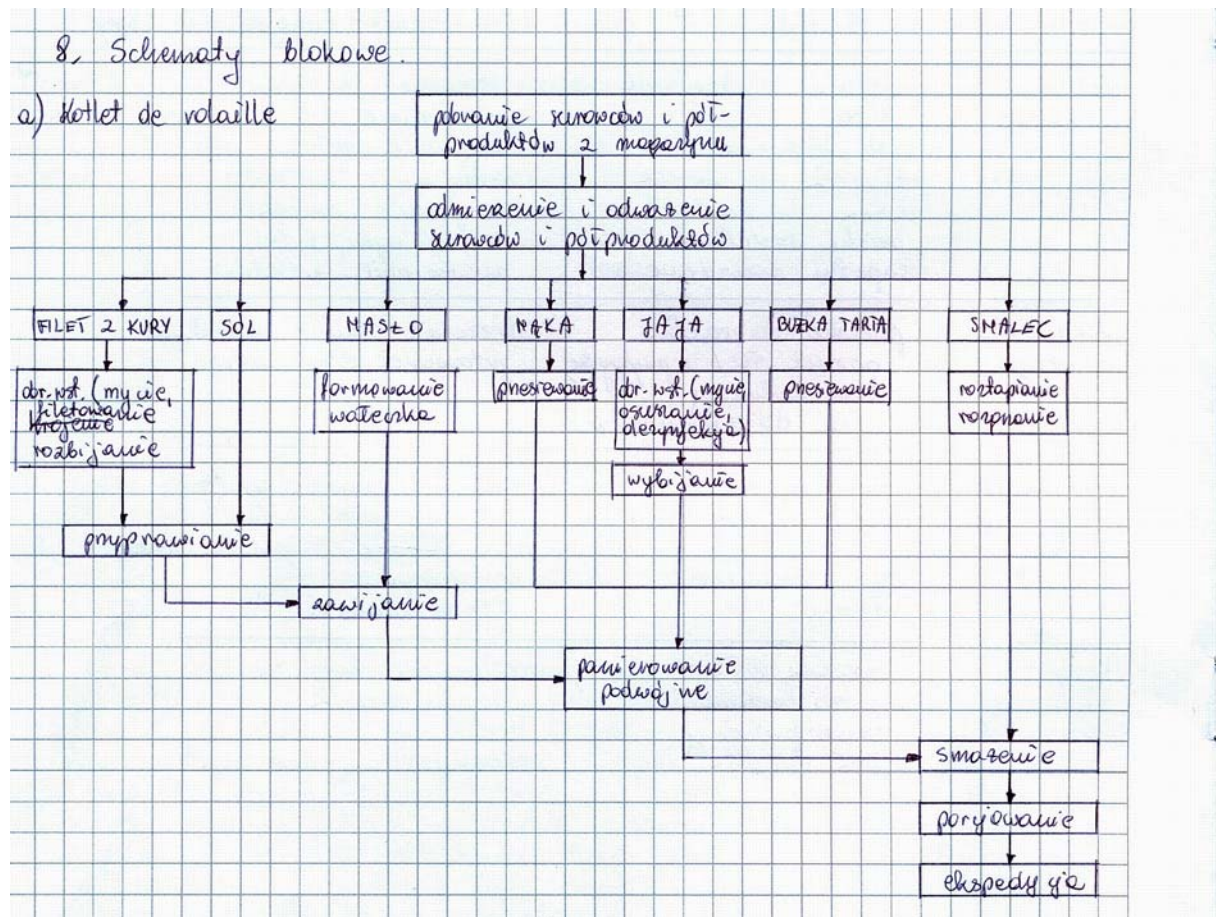 8, Schematy blokowe.
a) Kotlet de volaille
pobranie surowców i pół-
produktów z magazynu
odmierzenie i odważenie
surowców i półproduktów
FILET Z KURY
SÓL
MASŁO
MĄKA
JAJA
BUŁKA TARTA
SMALEC
obr. wst. (mycie,
filetowanie
krojenie
rozbijanie
formowanie
wałeczka
przesiewanie
obr. wst. (mycie,
osuszanie,
dezynfekcja)
przesiewanie
roztapianie
rozgrzanie
wybijanie
przyprawianie
zawijanie
panierowanie
podwójne
smażenie
porcjowanie
ekspedycja